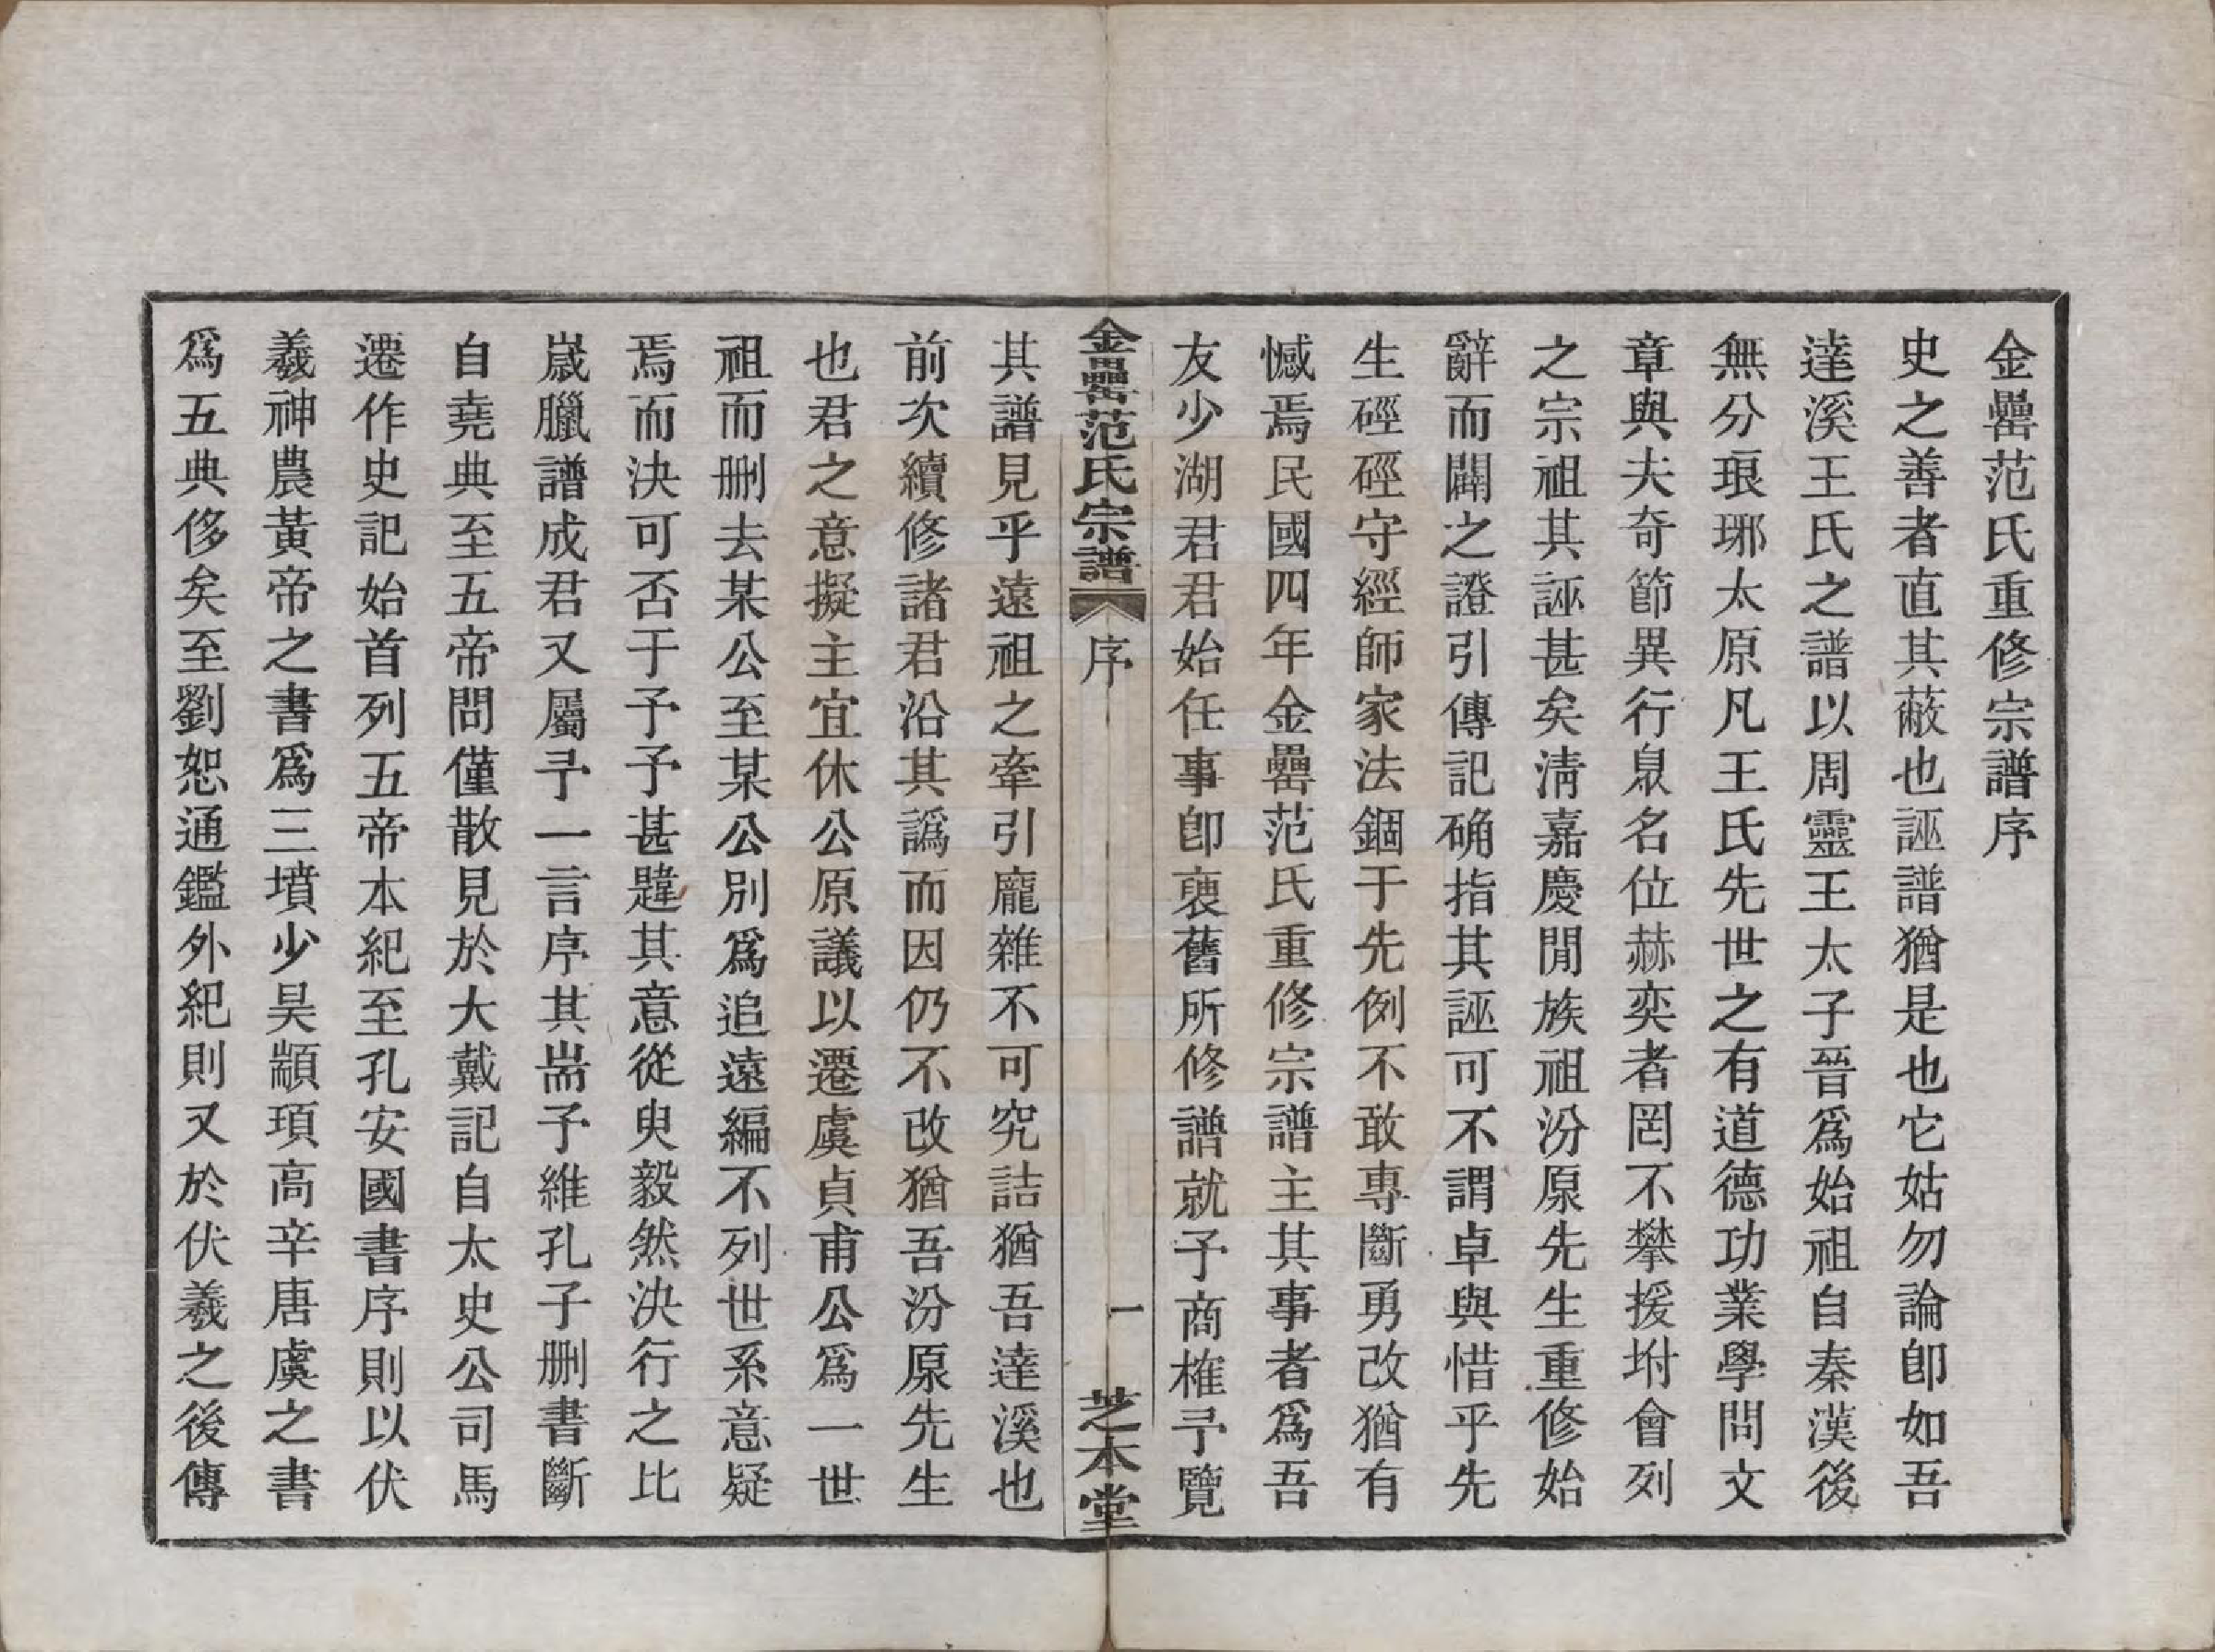 金罍范氏重修宗譜序
史之善者直其蔽也誣譜猶是也它姑勿論卽如吾
達溪王氏之譜以周靈王太子晉爲始祖自秦漢後
無分琅琊太原凡王氏先世之有道德功業學問文
章與夫奇節異行泉名位赫奕者罔不攀援坿會列
之宗祖其誣甚矣清嘉慶閒族祖汾原先生重修始
辭而闢之證引傳記确指其誣可不謂卓與惜乎先
生硜硜守經師家法錮于先例不敢專斷勇改猶有
憾焉民國四年金罍范氏重修宗譜主其事者爲吾
友少湖君君始任事卽裒舊所修譜就予商榷予覽
金罍范氏宗譜
序
一
芝本堂
其譜見乎遠祖之牽引龐雜不可究詰猶吾達溪也
前次續修諸君沿其譌而因仍不改猶吾汾原先生
也君之意擬主宜休公原議以遷虞貞甫公爲一世
祖而删去某公至某公別爲追遠編不列世系意疑
焉而決可否于予予甚韙其意從臾毅然決行之比
嵗臘譜成君又屬予一言序其耑予維孔子删書斷
自堯典至五帝問僅散見於大戴記自太史公司馬
遷作史記始首列五帝本紀至孔安國書序則以伏
羲神農黃帝之書爲三墳少昊顓頊高辛唐虞之書
爲五典侈矣至劉恕通鑑外紀則又於伏羲之後傳